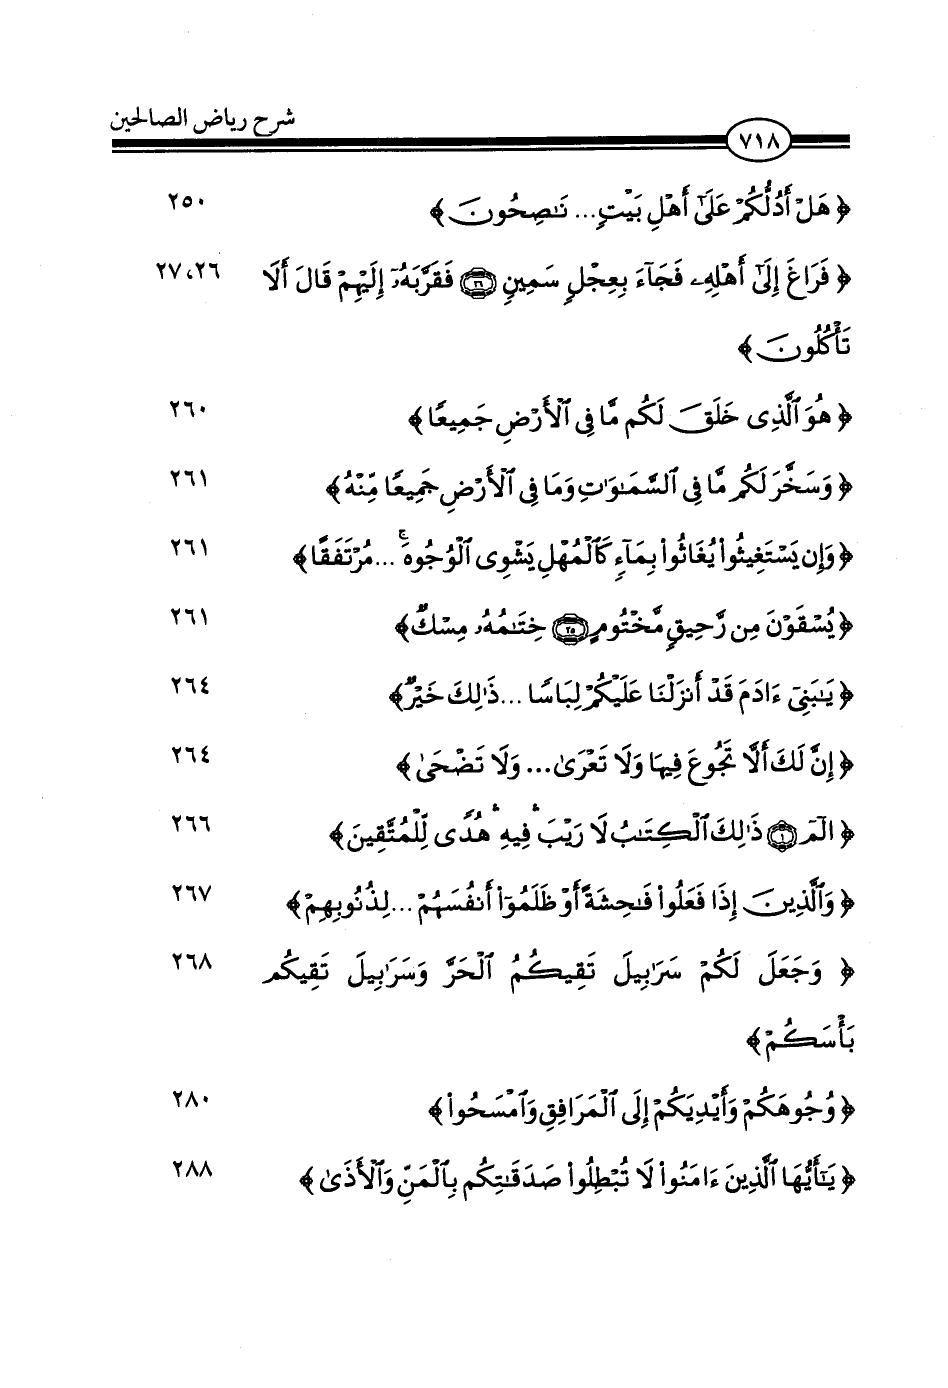 شرح رياض الصالحين
٧١٨
﴿ هَلْ أَدُلُّكُمْ عَلَىٰٓ أَهْلِ بَيْتٍ... نَـٰصِحُونَ ﴾ ٢٥٠
﴿ فَرَاغَ إِلَىٰٓ أَهْلِهِۦ فَجَآءَ بِعِجْلٍ سَمِينٍ ٢٦ فَقَرَّبَهُۥٓ إِلَيْهِمْ قَالَ أَلَا ٢٧،٢٦
تَأْكُلُونَ ﴾
﴿ هُوَ ٱلَّذِى خَلَقَ لَكُم مَّا فِى ٱلْأَرْضِ جَمِيعًا ﴾ ٢٦٠
﴿ وَسَخَّرَ لَكُم مَّا فِى ٱلسَّمَـٰوَٰتِ وَمَا فِى ٱلْأَرْضِ جَمِيعًا مِّنْهُ ﴾ ٢٦١
﴿ وَإِن يَسْتَغِيثُوا۟ يُغَاثُوا۟ بِمَآءٍ كَٱلْمُهْلِ يَشْوِى ٱلْوُجُوهَ ۚ ...مُرْتَفَقًا ﴾ ٢٦١
﴿ يُسْقَوْنَ مِن رَّحِيقٍ مَّخْتُومٍ ٢٥ خِتَـٰمُهُۥ مِسْكٌ ﴾ ٢٦١
﴿ يَـٰبَنِىٓ ءَادَمَ قَدْ أَنزَلْنَا عَلَيْكُمْ لِبَاسًا ...ذَٰلِكَ خَيْرٌ ﴾ ٢٦٤
﴿ إِنَّ لَكَ أَلَّا تَجُوعَ فِيهَا وَلَا تَعْرَىٰ... وَلَا تَضْحَىٰ ﴾ ٢٦٤
﴿ الٓمٓ ١ ذَٰلِكَ ٱلْكِتَـٰبُ لَا رَيْبَ ۛ فِيهِ ۛ هُدًى لِّلْمُتَّقِينَ ﴾ ٢٦٦
﴿ وَٱلَّذِينَ إِذَا فَعَلُوا۟ فَـٰحِشَةً أَوْ ظَلَمُوٓا۟ أَنفُسَهُمْ ...لِذُنُوبِهِمْ ﴾ ٢٦٧
﴿ وَجَعَلَ لَكُمْ سَرَٰبِيلَ تَقِيكُمُ ٱلْحَرَّ وَسَرَٰبِيلَ تَقِيكُم ٢٦٨
بَأْسَكُمْ ﴾
﴿ وُجُوهَكُمْ وَأَيْدِيَكُمْ إِلَى ٱلْمَرَافِقِ وَٱمْسَحُوا۟ ﴾ ٢٨٠
﴿ يَـٰٓأَيُّهَا ٱلَّذِينَ ءَامَنُوا۟ لَا تُبْطِلُوا۟ صَدَقَـٰتِكُم بِٱلْمَنِّ وَٱلْأَذَىٰ ﴾ ٢٨٨